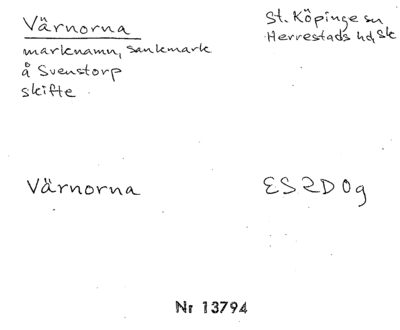 Värnorna
marknamn, sankmark
å Svenstorp
skifte
St. Köpinge sn
Herrestads hd, Sk
Värnorna
ES2D0g
Nr 13794